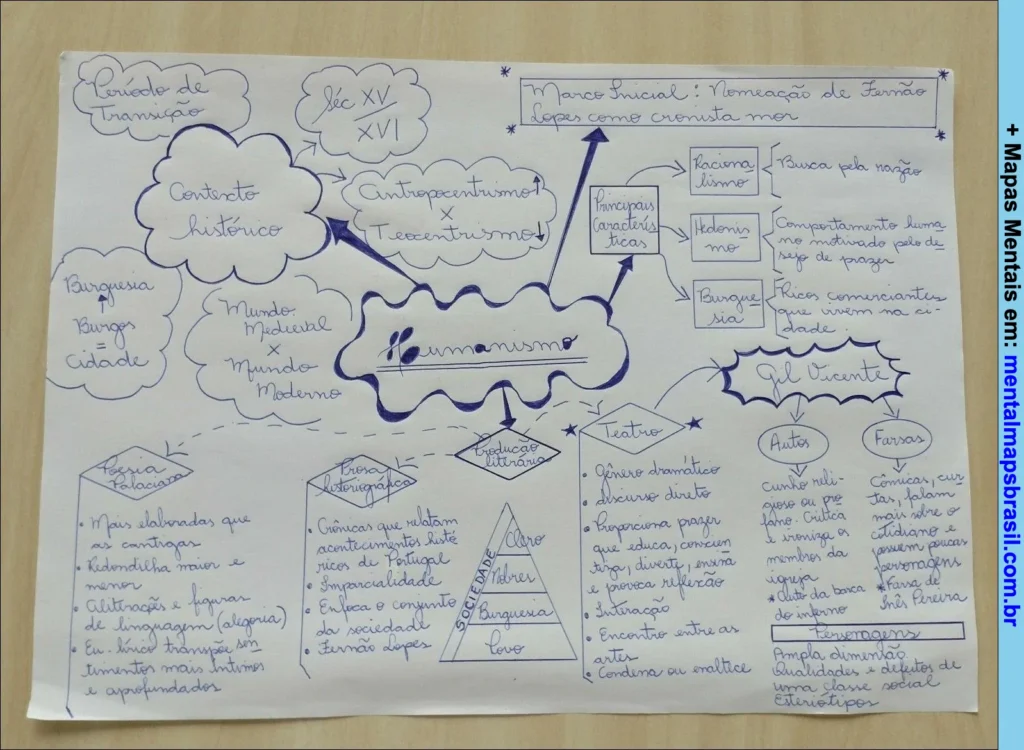 Período de
Transição
Séc XV
XVI
Marco Inicial: Nomeação de Fernão
Lopes como cronista mor
Contexto
histórico
Antropocentrismo ↑
X
Teocentrismo ↓
Principais
Caracterís
ticas
Raciona-
lismo
Busca pela razão
Hedonis-
mo
Comportamento huma
no motivado pelo de
sejo de prazer
Burgue-
sia
Ricos comerciantes
que vivem na ci-
dade.
Burguesia
↑
Burgos
=
Cidade
Mundo
Medieval
X
Mundo
Moderno
Humanismo
Gil Vicente
Autos
Farsas
Produção
literária
Poesia
Palaciana
• Mais elaboradas que
as cantigas
• Redondilha maior e
menor
• Aliterações e figuras
de linguagem (alegoria)
• Eu-lírico transpõe sen
timentos mais íntimos
e aprofundados
Prosa
historiográfica
• Crônicas que relatam
acontecimentos histó
ricos de Portugal
• Imparcialidade
• Enfoca o conjunto
da sociedade
• Fernão Lopes
SOCIEDADE
Clero
Nobres
Burguesia
Povo
Teatro
• Gênero dramático
• discurso direto
• Proporciona prazer
que educa, conscien
tiza, diverte, ensina
e provoca reflexão
• Interação
• Encontro entre as
artes
• Condena ou enaltece
cunho reli-
gioso ou pro
fano. Critica
e ironiza os
membros da
igreja
* Auto da barca
do inferno
Cômicas, cur
tas, falam
mais sobre o
cotidiano e
possuem poucas
personagens
* Farsa de
Inês Pereira
Personagens
Ampla dimensão
Qualidades e defeitos de
uma classe social
Esteriótipos
+ Mapas Mentais em: mentalmapsbrasil.com.br